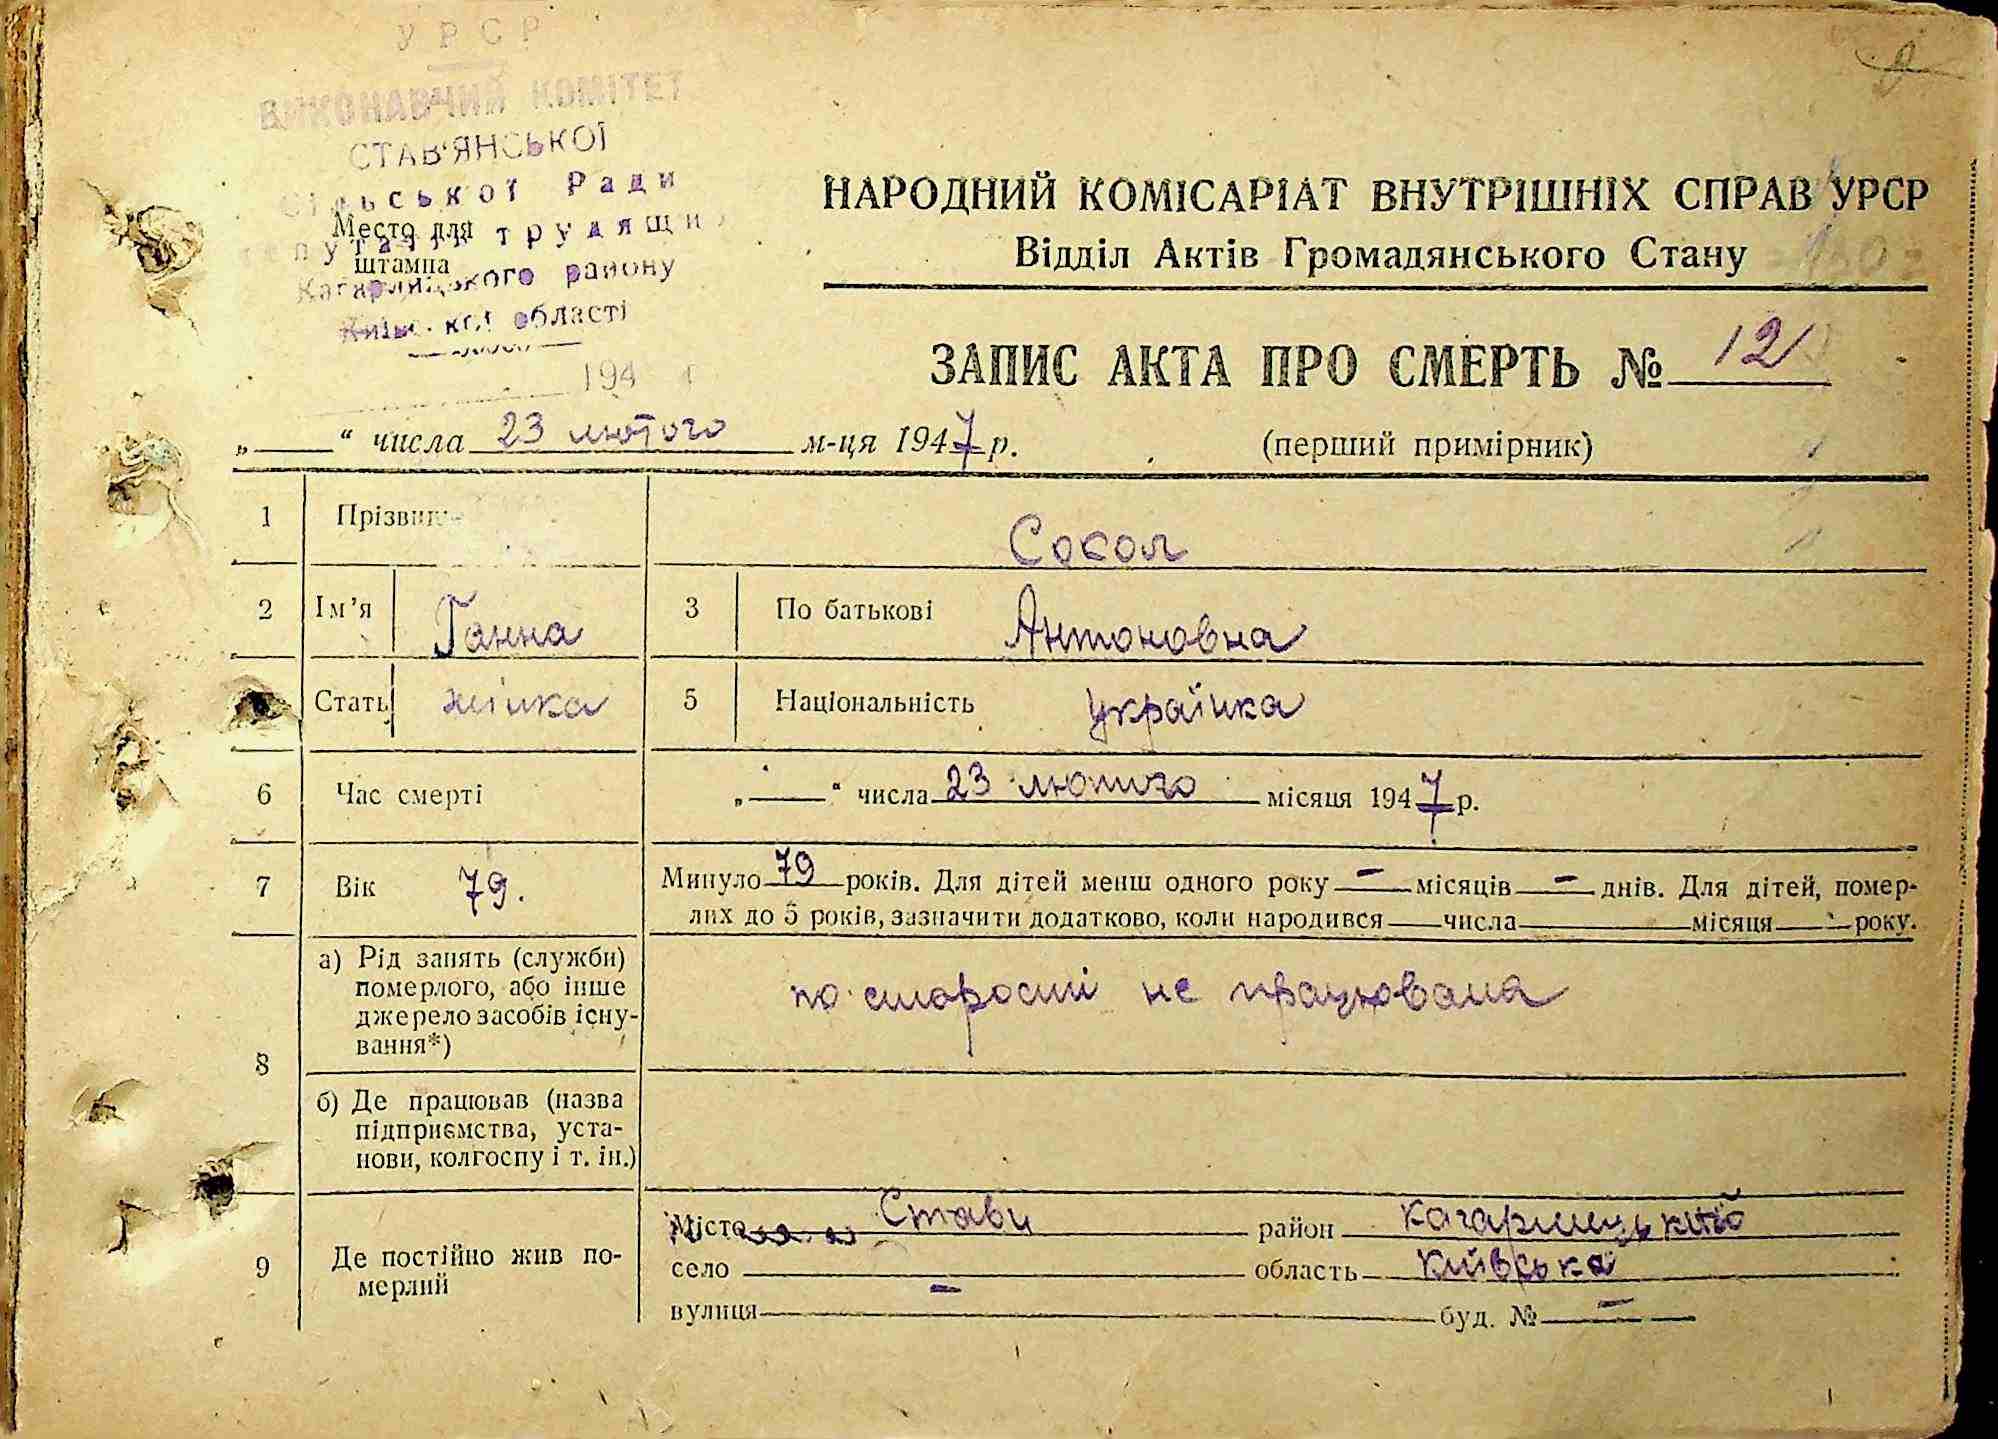 УРСР
ВИКОНАВЧИЙ КОМІТЕТ
СТАВ'ЯНСЬКОЇ
Сільської Ради
Место для
депутатів трудящих
штампа
Кагарлицького району
Київської області
194 г
НАРОДНИЙ КОМІСАРІАТ ВНУТРІШНІХ СПРАВ УРСР
Відділ Актів Громадянського Стану
ЗАПИС АКТА ПРО СМЕРТЬ № 12
„ “ числа 23 лютого м-ця 1947 р. (перший примірник)
1 Прізвище Сокол
2 Ім’я Ганна 3 По батькові Антоновна
Стать жінка 5 Національність українка
6 Час смерті „ “ числа 23 лютого місяця 1947 р.
7 Вік 79. Минуло 79 років. Для дітей менш одного року — місяців — днів. Для дітей, помер-
лих до 5 років, зазначити додатково, коли народився числа місяця року.
8 а) Рід занять (служби)
померлого, або інше
джерело засобів існу-
вання*)
по старості не працювала
б) Де працював (назва
підприємства, уста-
нови, колгоспу і т. ін.)
9 Де постійно жив по-
мерлий
Місто Стави район Кагарлицький
село область Київська
вулиця — буд. № —